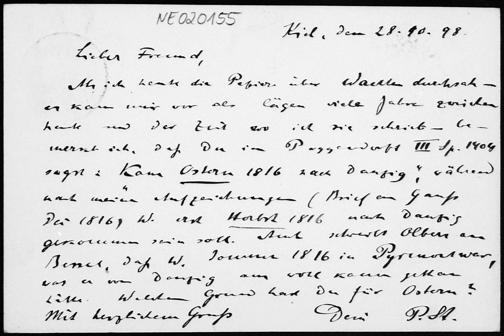 NE020155
Kiel, den 28.10.98.
Lieber Freund,
Als ich heute die Papiere über Wachter durchsah –
es kam mir vor als lägen viele Jahre zwischen
heute und der Zeit wo ich sie schrieb – be-
merkte ich, daß Du im Poggendorff III Sp. 1404
sagst „Kam Ostern 1816 nach Danzig“, während
nach meinen Aufzeichnungen (Brief an Gauß
1816) W. erst Herbst 1816 nach Danzig
gekommen sein soll. Auch schreibt Olbers an
Bessel, daß W. Sommer 1816 in Pyrmont war,
was er von Danzig aus wohl kaum gethan
hätte. Welchen Grund hast Du für Ostern?
Mit herzlichem Gruß Dein P. St.